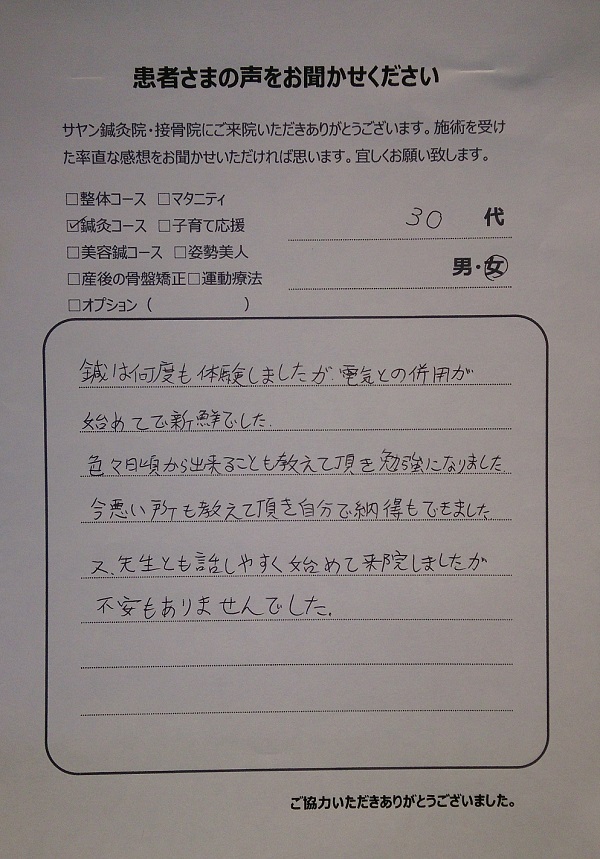 患者さまの声をお聞かせください
サヤン鍼灸院・接骨院にご来院いただきありがとうございます。施術を受け
た率直な感想をお聞かせいただければ思います。宜しくお願い致します。
□整体コース □マタニティ
☑鍼灸コース □子育て応援
30 代
□美容鍼コース □姿勢美人
男・女
□産後の骨盤矯正□運動療法
□オプション（ ）
鍼は何度も体験しましたが、電気との併用が
始めてで新鮮でした.
色々日頃から出来ることも教えて頂き勉強になりました
今悪い所も教えて頂き自分で納得もできました
又、先生とも話しやすく始めて来院しましたが
不安もありませんでした.
ご協力いただきありがとうございました。